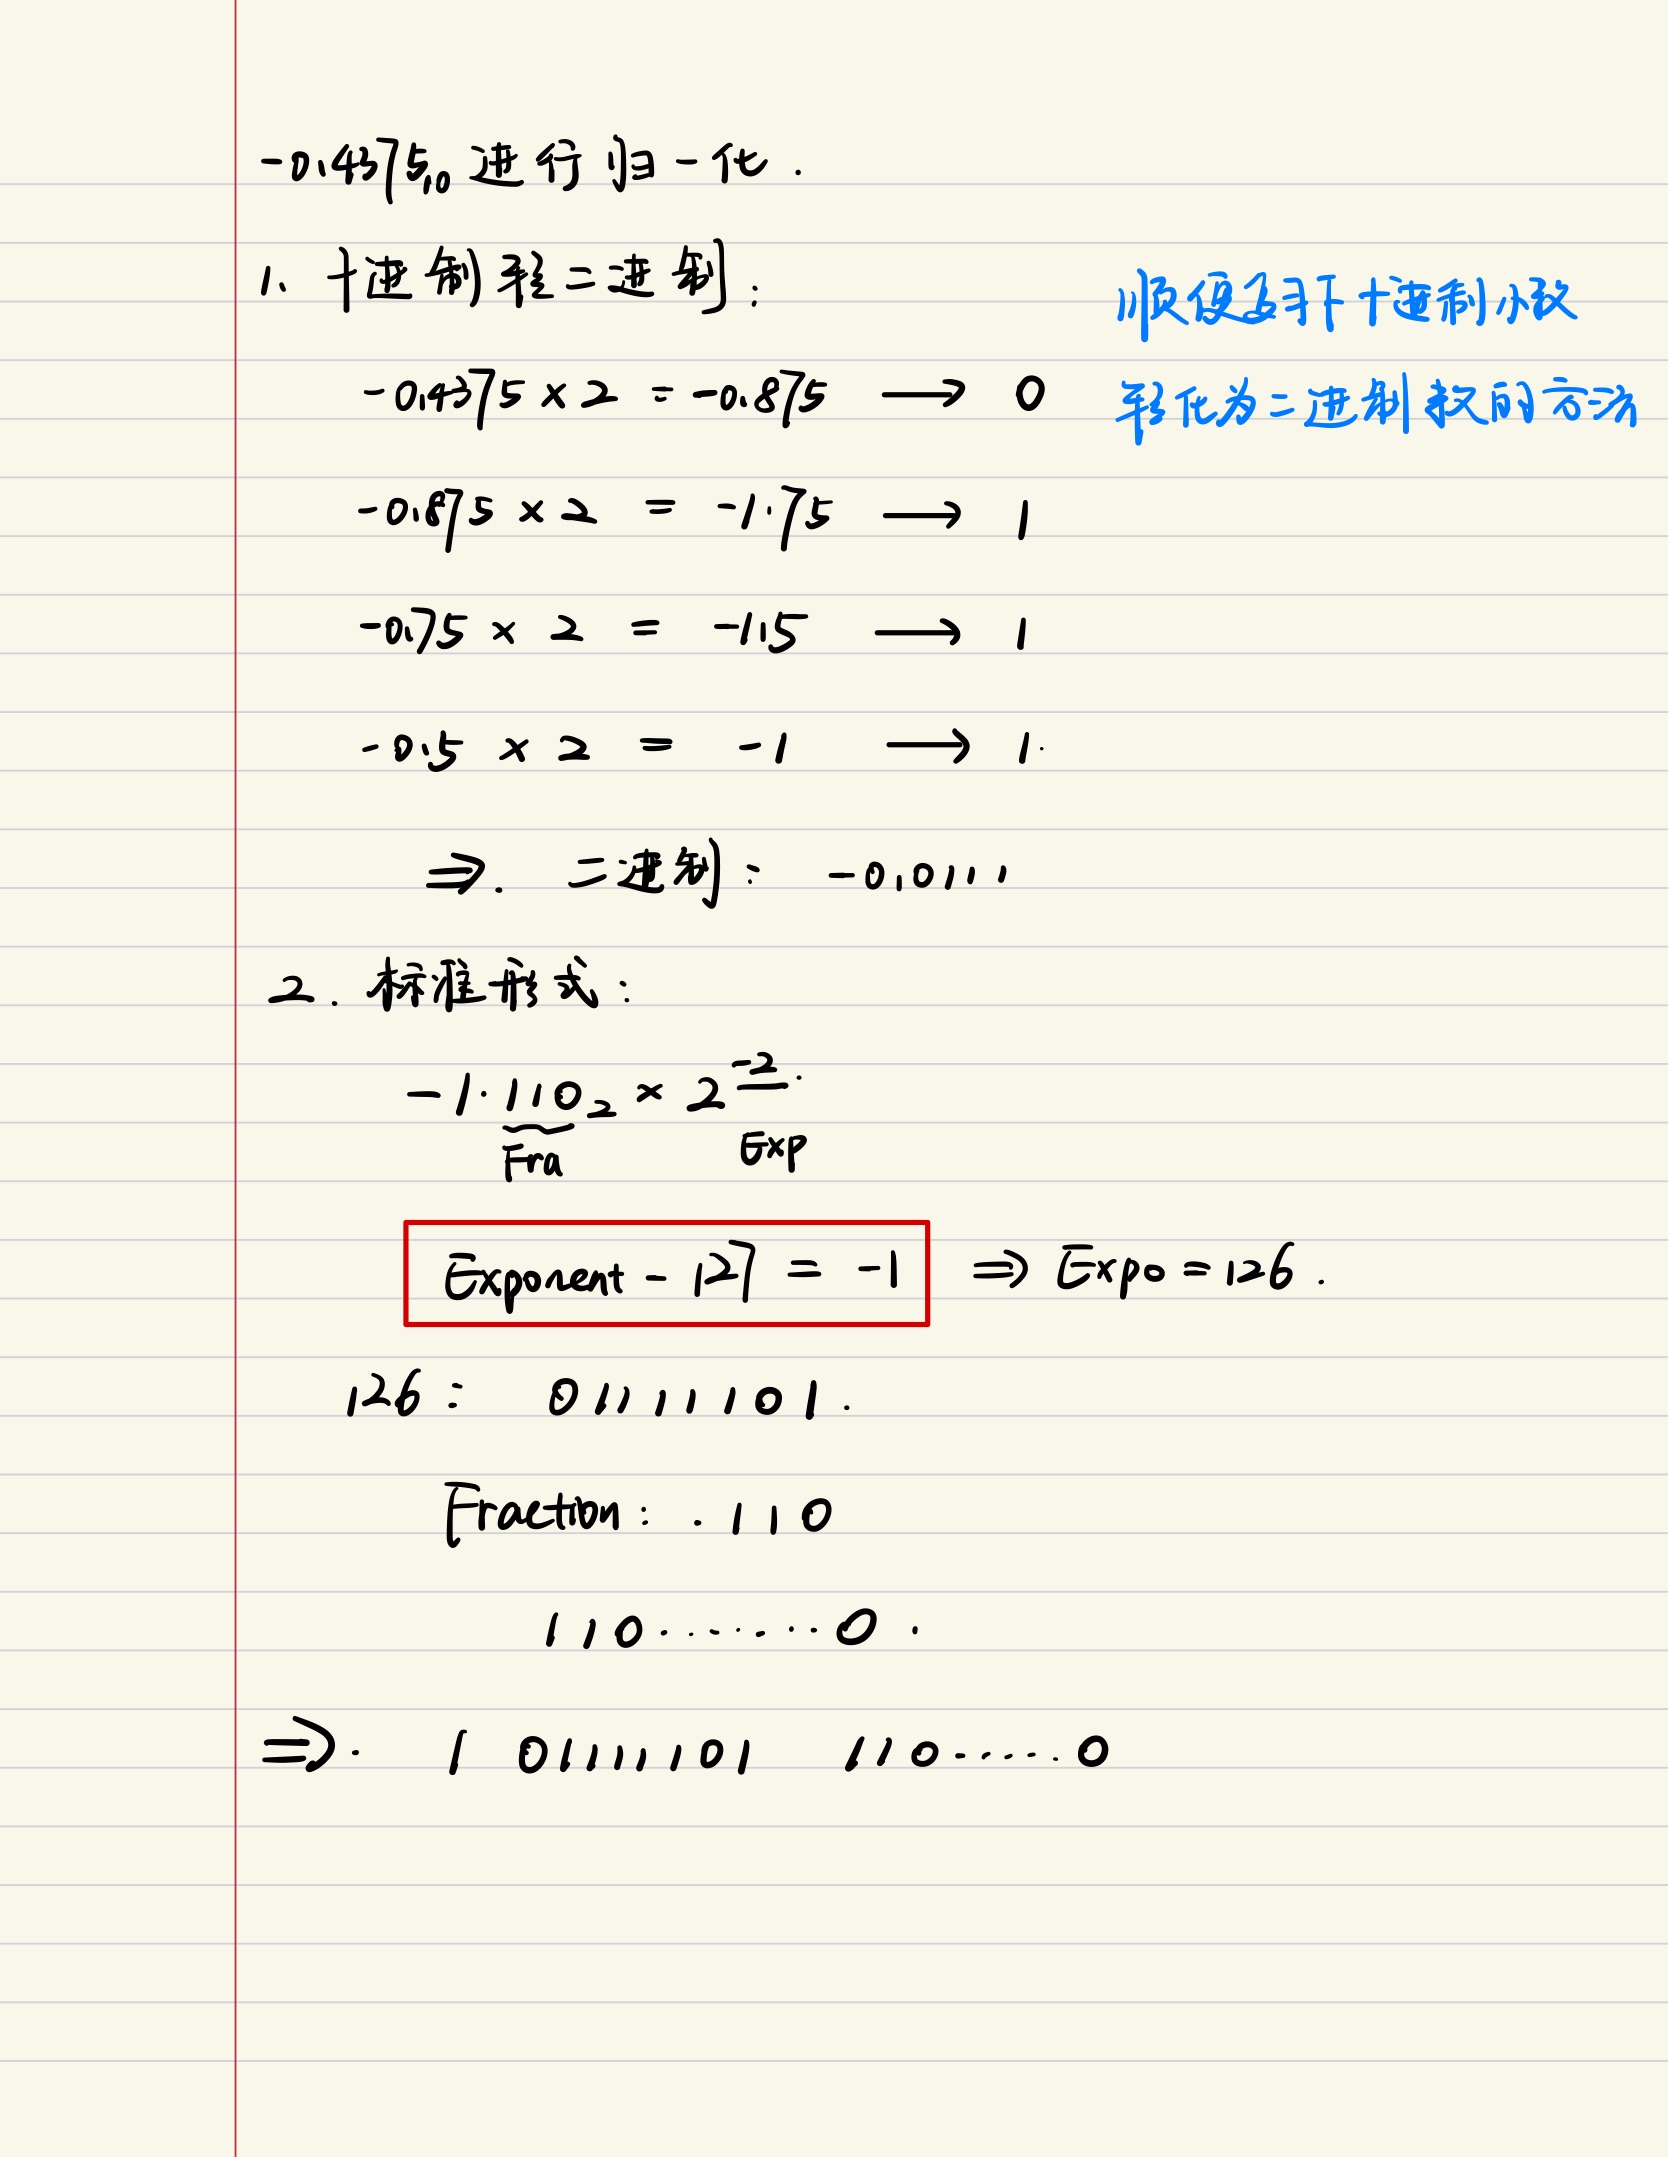 -0.4375₁₀ 进行归一化.
1、十进制转二进制:
顺便复习下十进制小数
转化为二进制数的方法
-0.4375 × 2 = -0.875 → 0
-0.875 × 2 = -1.75 → 1
-0.75 × 2 = -1.5 → 1
-0.5 × 2 = -1 → 1.
⇒. 二进制: -0.0111
2. 标准形式:
-1.110₂ × 2⁻².
Fra Exp
Exponent - 127 = -1 ⇒ Expo = 126.
126: 01111101.
Fraction: .110
110·······0.
⇒. 1 01111101 110······0